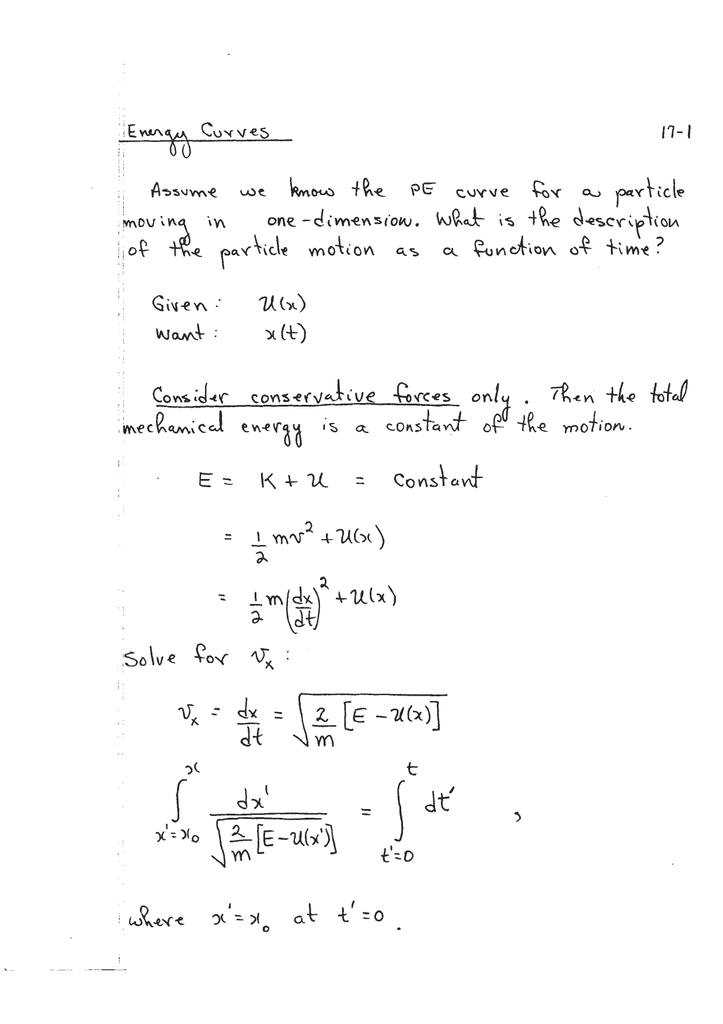 Energy Curves 17-1
Assume we know the PE curve for a particle
moving in one-dimension. What is the description
of the particle motion as a function of time?
Given: U(x)
Want: x(t)
Consider conservative forces only. Then the total
mechanical energy is a constant of the motion.
E = K + U = Constant
= 1/2 mv² + U(x)
= 1/2 m(dx/dt)² + U(x)
Solve for vₓ:
vₓ = dx/dt = √(2/m [E - U(x)])
∫_{x'=x₀}^{x} dx'/√(2/m [E-U(x')]) = ∫_{t'=0}^{t} dt' ,
where x'=x₀ at t'=0.